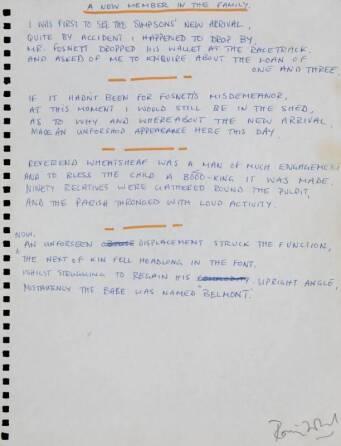 A NEW MEMBER IN THE FAMILY.
I WAS FIRST TO SEE THE SIMPSONS' NEW ARRIVAL,
QUITE BY ACCIDENT I HAPPENED TO DROP BY,
MR. FOSNETT DROPPED HIS WALLET AT THE RACETRACK.
AND ASKED OF ME TO ENQUIRE ABOUT THE LOAN OF
ONE AND THREE.
IF IT HADN'T BEEN FOR FOSNETT'S MISDEMEANOR,
AT THIS MOMENT I WOULD STILL BE IN THE SHED,
AS TO WHY AND WHEREABOUT THE NEW ARRIVAL
MADE AN UNFORSEED APPEARANCE HERE THIS DAY.
REVEREND WHEATSHEAF WAS A MAN OF MUCH ENGAGEMENT
AND TO BLESS THE CHILD A BOOO-KING IT WAS MADE.
NINETY RELATIVES WERE GATHERED ROUND THE PULPIT,
AND THE PARISH THRONGED WITH LOUD ACTIVITY.
NOW.
AN UNFORSEEN DISPLACEMENT STRUCK THE FUNCTION,
THE NEXT OF KIN FELL HEADLONG IN THE FONT.
WHILST STRUGGLING TO REGAIN HIS UPRIGHT ANGLE,
MISTAKENLY THE BABE WAS NAMED "BELMONT."